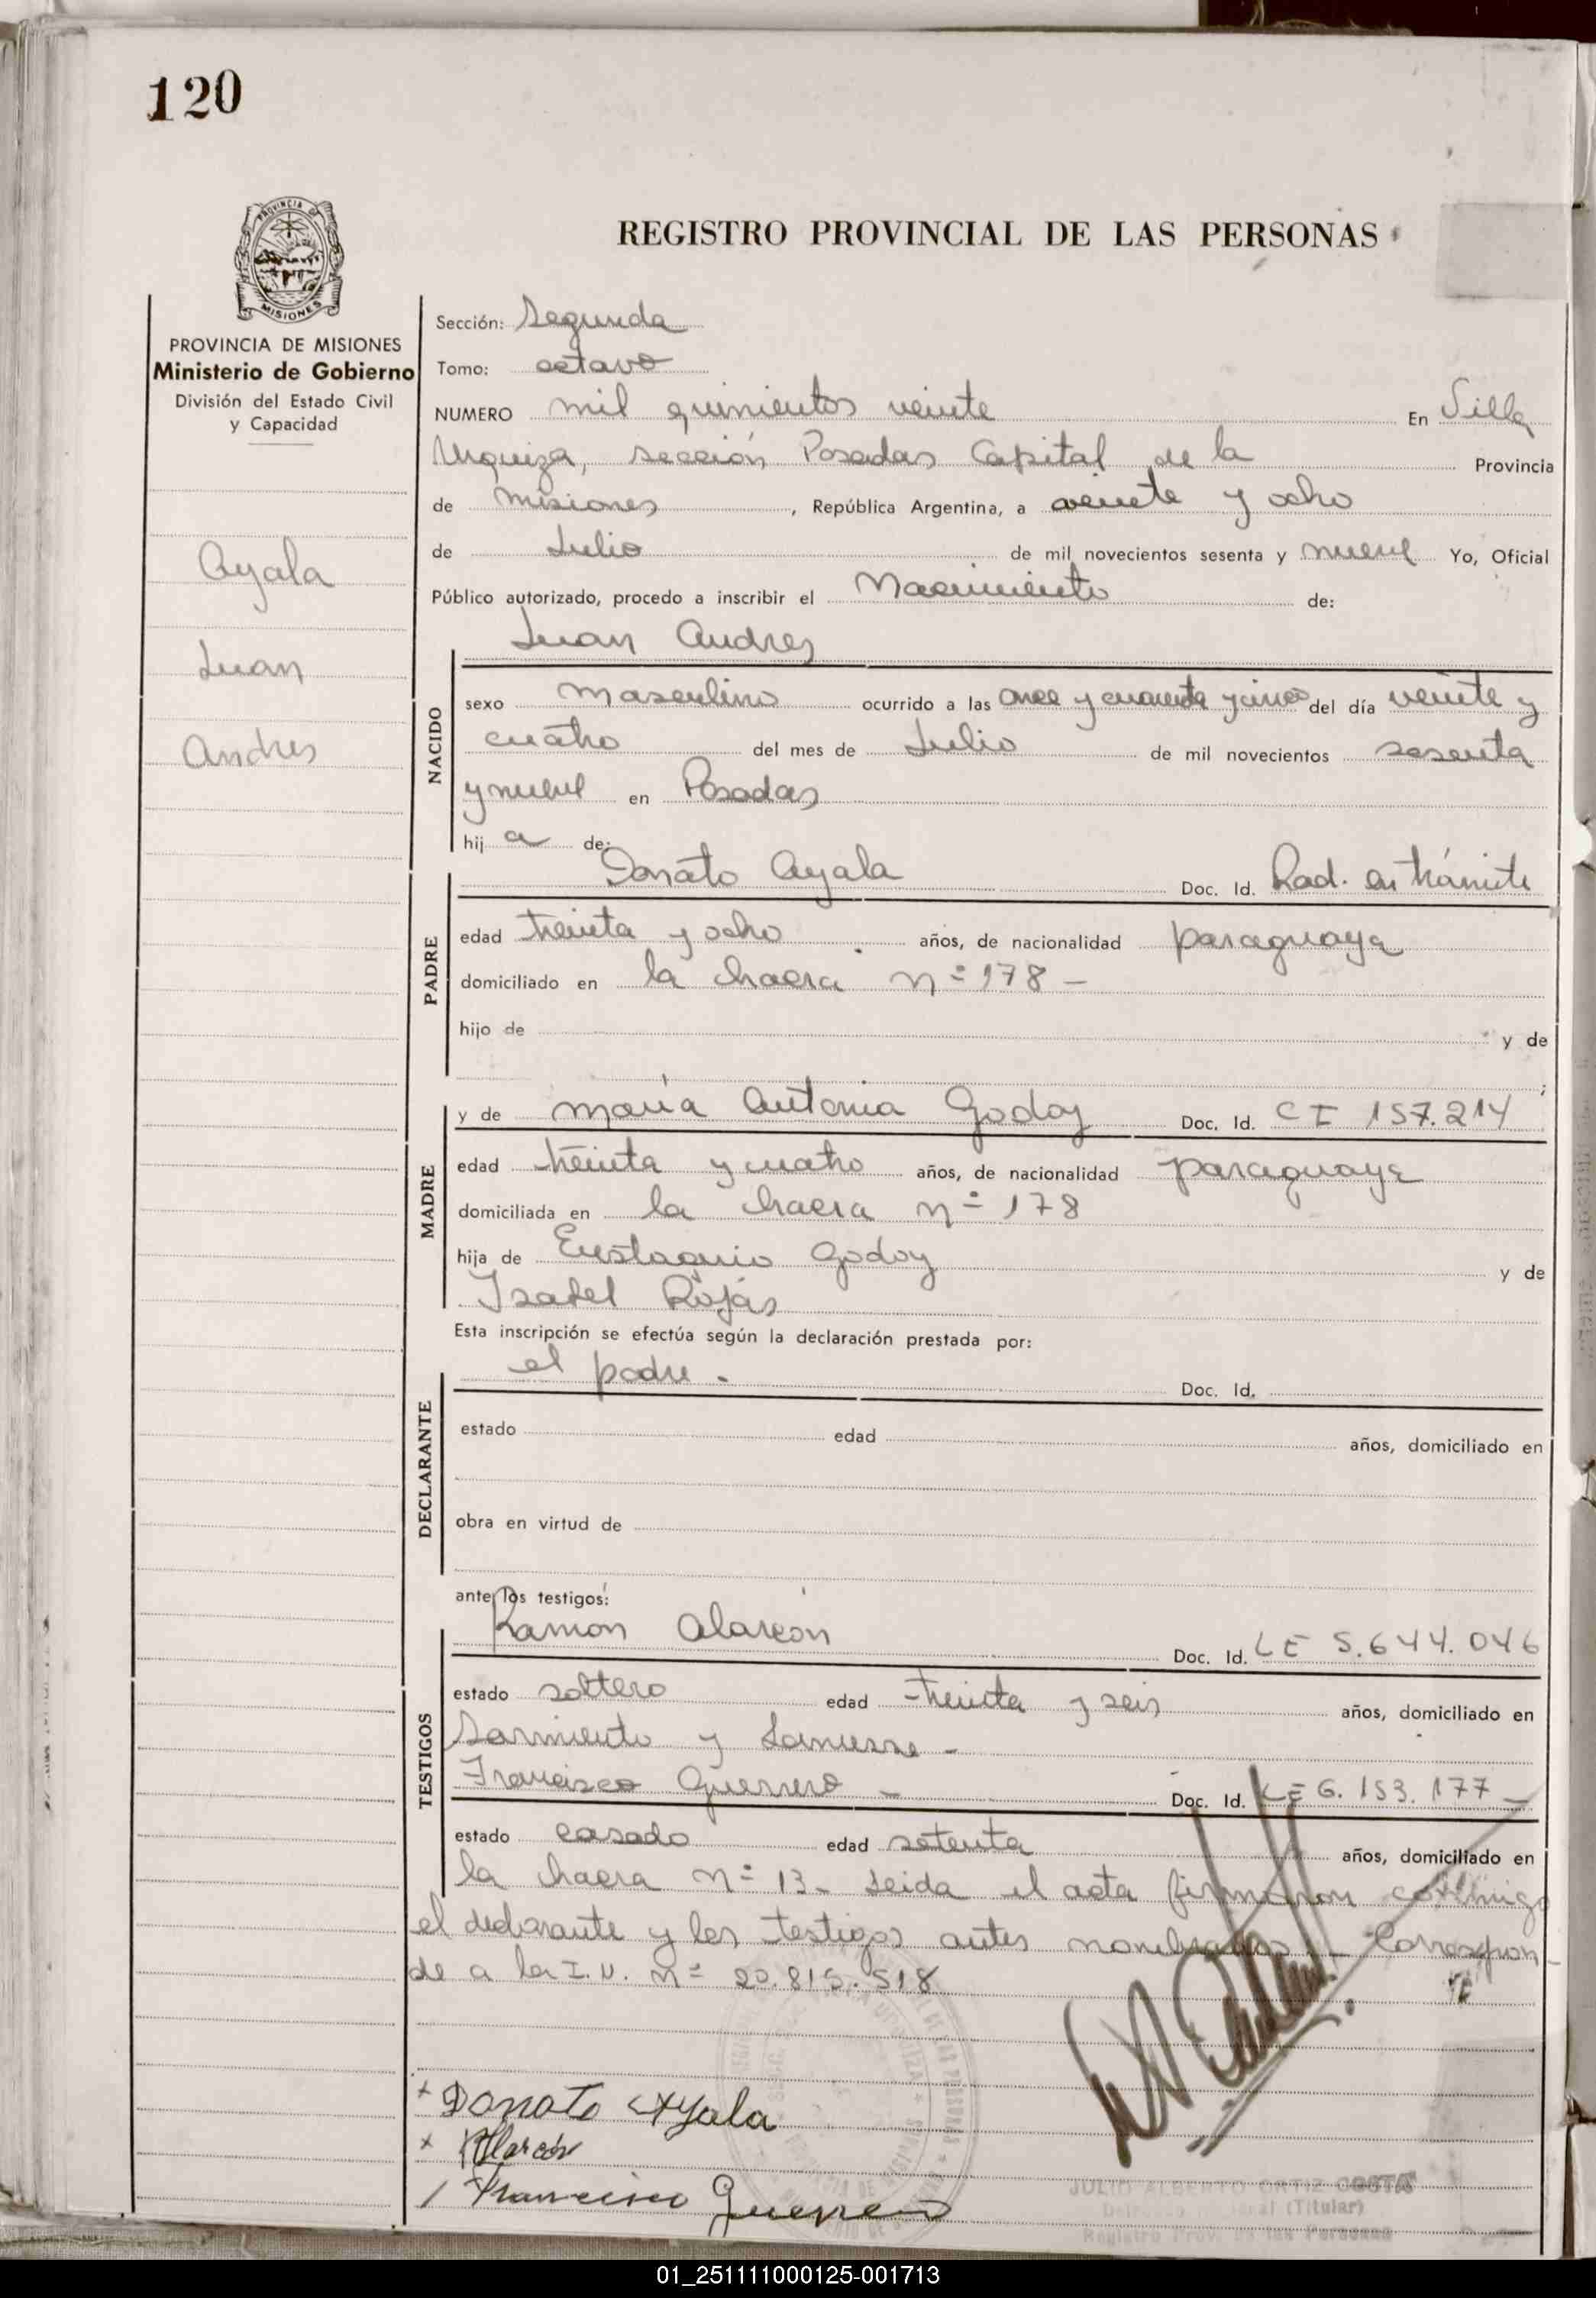 120
PROVINCIA DE
MISIONES
REGISTRO PROVINCIAL DE LAS PERSONAS
PROVINCIA DE MISIONES
Ministerio de Gobierno
División del Estado Civil
y Capacidad
Ayala
Juan
Andres
Sección: Segunda
Tomo: octavo
NUMERO mil quinientos veinte En Villa
Urquiza, sección Posadas Capital de la Provincia
de Misiones, República Argentina, a veinte y ocho
de Julio de mil novecientos sesenta y nueve Yo, Oficial
Público autorizado, procedo a inscribir el Nacimiento de:
Juan Andres
NACIDO
sexo masculino ocurrido a las once y cuarenta y cinco del día veinte y
cuatro del mes de Julio de mil novecientos sesenta
y nueve en Posadas
hij a de:
PADRE
Donato Ayala Doc. Id. Rad. en trámite
edad treinta y ocho años, de nacionalidad paraguaya
domiciliado en la chacra nº 178 –
hijo de y de
MADRE
y de María Antonia Godoy Doc. Id. CI 157.214
edad treinta y cuatro años, de nacionalidad paraguaya
domiciliada en la chacra nº 178
hija de Eustaquio Godoy y de
Isabel Rojas
Esta inscripción se efectúa según la declaración prestada por:
DECLARANTE
el padre. Doc. Id.
estado edad años, domiciliado en
obra en virtud de
ante los testigos:
TESTIGOS
Ramon Alarcón Doc. Id. LE 5.644.046
estado soltero edad treinta y seis años, domiciliado en
Sarmiento y
Francisco Guerrero – Doc. Id. LE 6.153.177 –
estado casado edad setenta años, domiciliado en
la chacra nº 13 – Leida el acta firmaron conmigo
el declarante y los testigos antes nombrados – Correspon
de a la I.N. nº 20.815.518
+ Donato Ayala
+ Alarcón
/ Francisco Guerrero
JULIO ALBERTO ORTIZ COSTA
(Titular)
Registro Prov. de las Personas
01_251111000125-001713